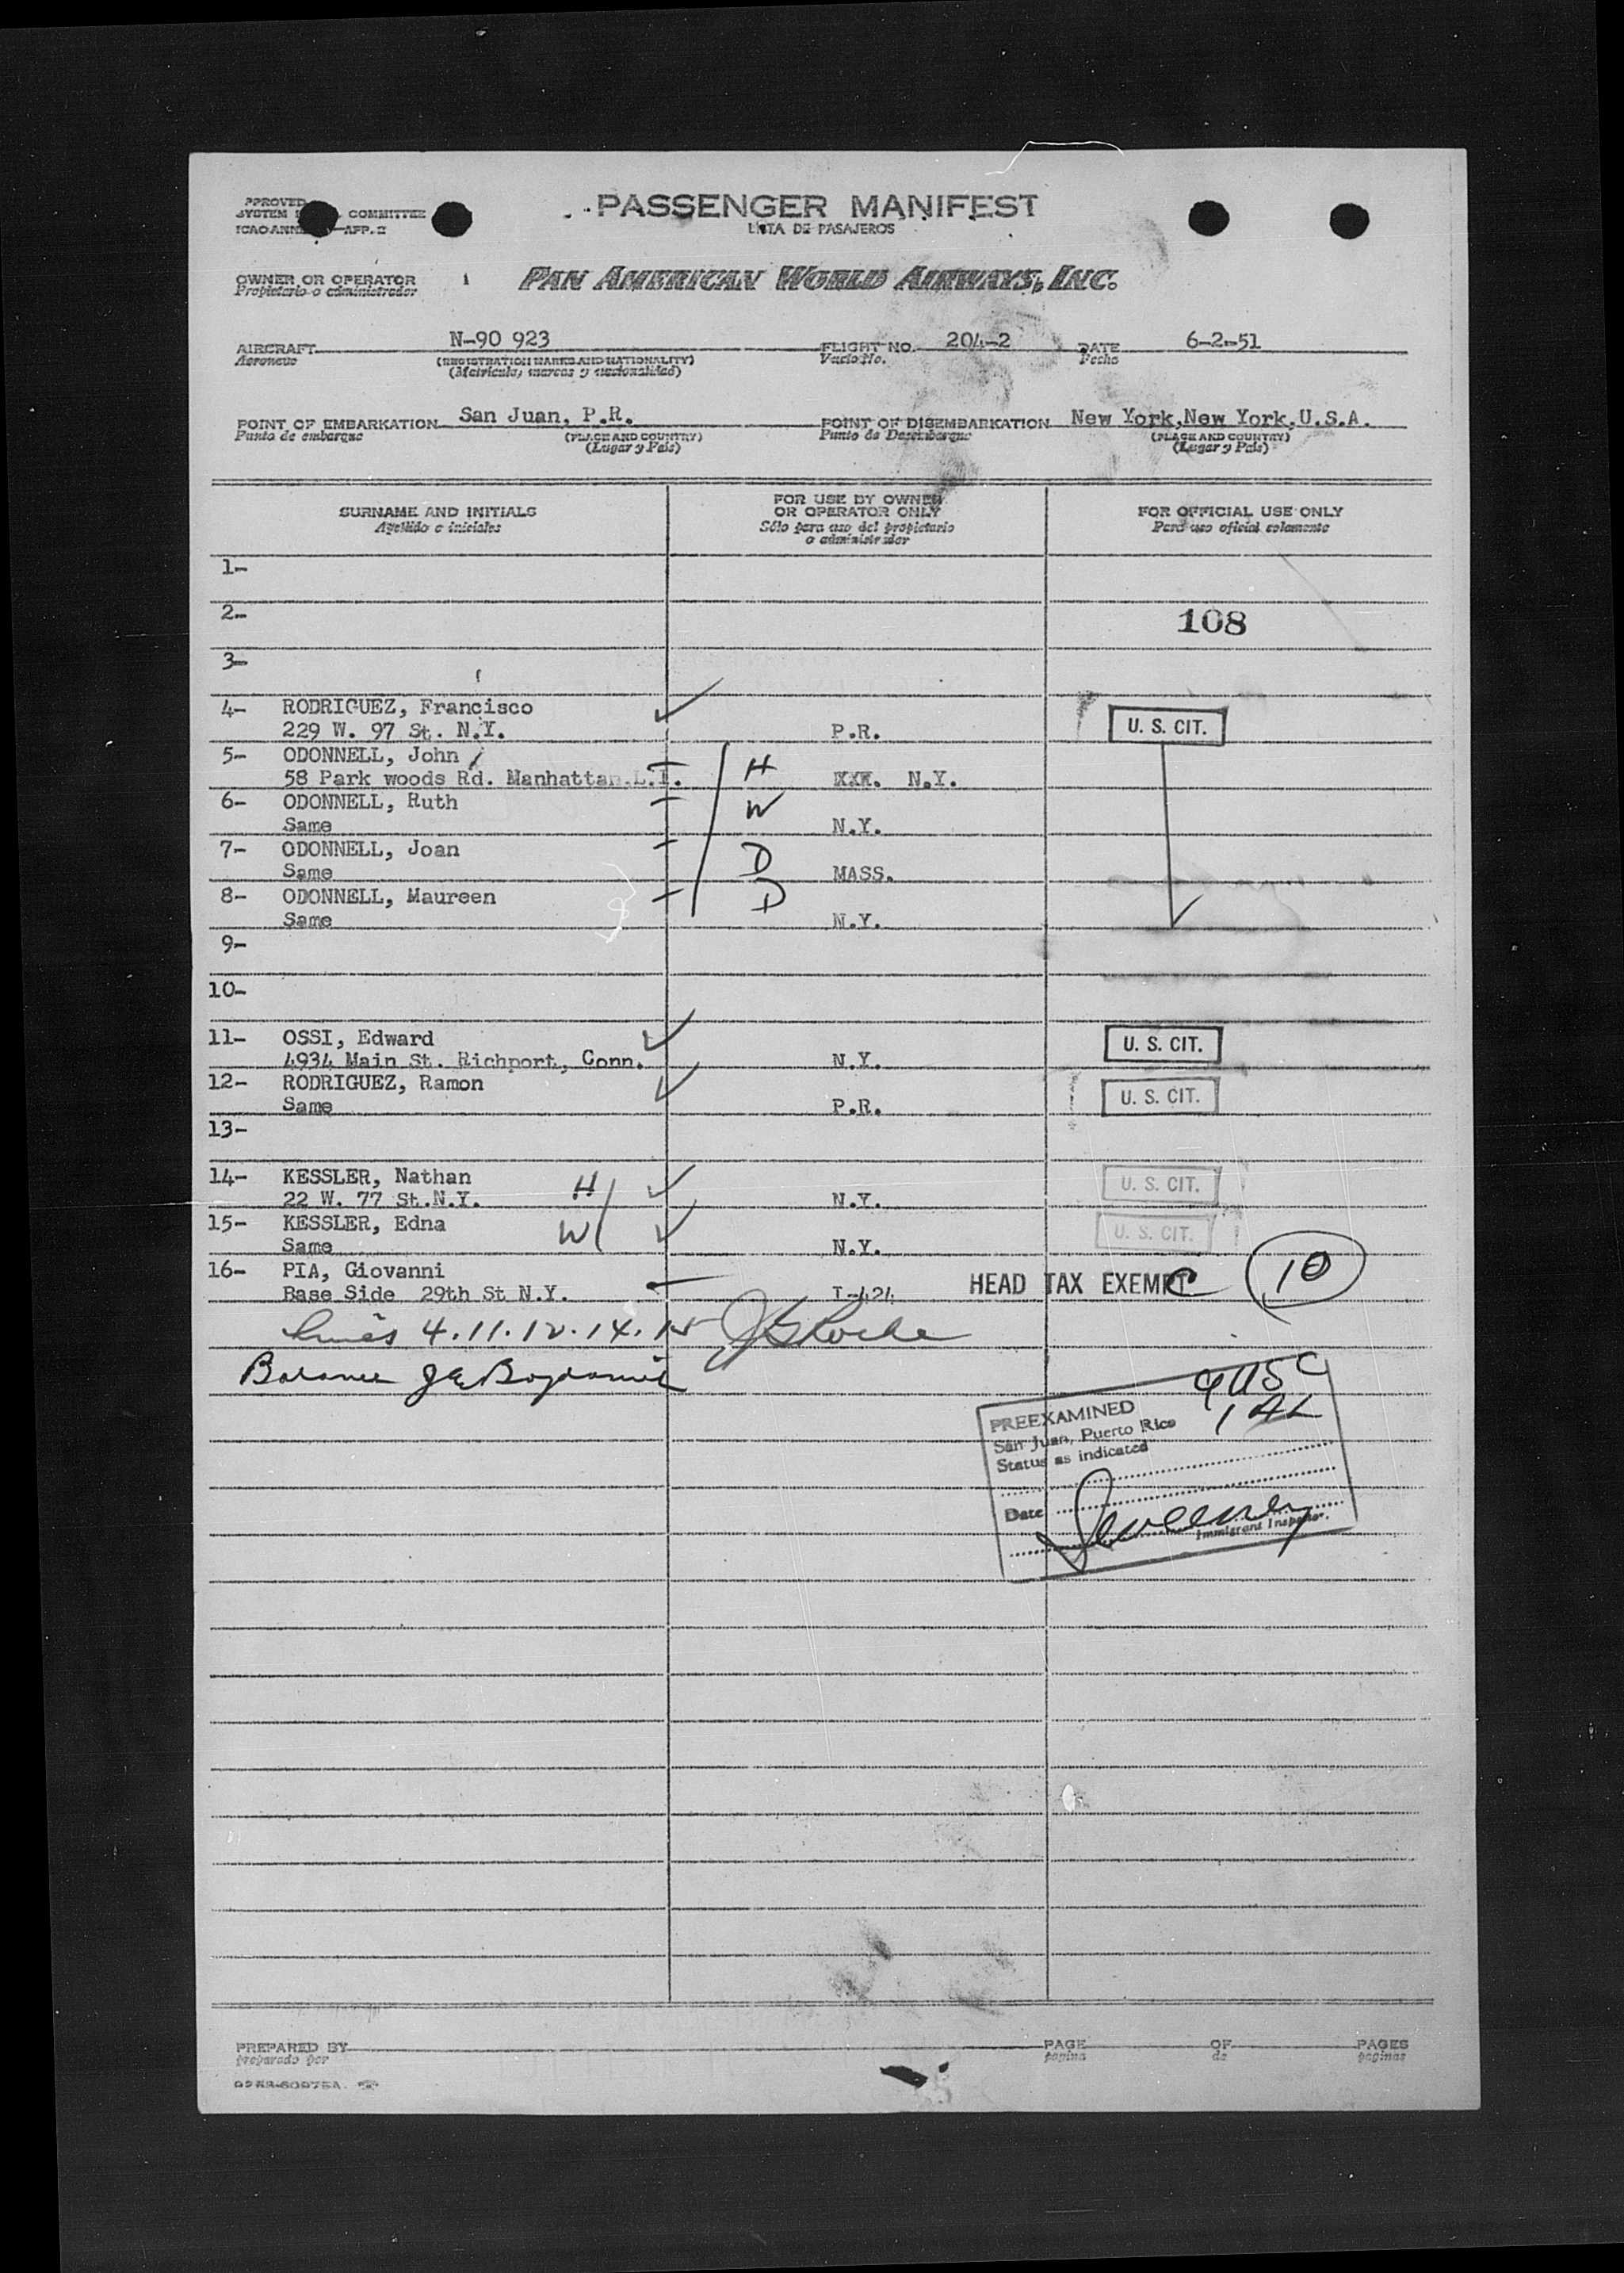 PPROVED
SYSTEM COMMITTEE
ICAO ANN APP. 2
PASSENGER MANIFEST
LISTA DE PASAJEROS
OWNER OR OPERATOR PAN AMERICAN WORLD AIRWAYS, INC.
Propietario o administrador
AIRCRAFT N-90 923 FLIGHT NO. 204-2 DATE 6-2-51
Aeronave (REGISTRATION MARKS AND NATIONALITY) Vuelo No. Fecha
(Matricula, marcas y nacionalidad)
POINT OF EMBARKATION San Juan, P.R. POINT OF DISEMBARKATION New York, New York, U.S.A.
Punto de embarque (PLACE AND COUNTRY) Punto de Desembarque (PLACE AND COUNTRY)
(Lugar y País) (Lugar y País)
SURNAME AND INITIALS FOR USE BY OWNER OR OPERATOR ONLY FOR OFFICIAL USE ONLY
Apellido e iniciales Sólo para uso del propietario o administrador Para uso oficial solamente
1-
2- 108
3-
4- RODRIGUEZ, Francisco
229 W. 97 St. N.Y. P.R. U. S. CIT.
5- ODONNELL, John H
58 Park woods Rd. Manhattan.L.I. XXX. N.Y.
6- ODONNELL, Ruth W
Same N.Y.
7- ODONNELL, Joan D
Same MASS.
8- ODONNELL, Maureen D
Same N.Y.
9-
10-
11- OSSI, Edward U. S. CIT.
4934 Main St. Richport, Conn. N.Y.
12- RODRIGUEZ, Ramon U. S. CIT.
Same P.R.
13-
14- KESSLER, Nathan H U. S. CIT.
22 W. 77 St.N.Y. N.Y.
15- KESSLER, Edna W U. S. CIT.
Same N.Y.
16- PIA, Giovanni
Base Side 29th St N.Y. I-424 HEAD TAX EXEMPT 10
4.11.12.14.15
Balance
9 USC
1 AL
PREEXAMINED
San Juan, Puerto Rico
Status as indicated
Date
Sweeney
Immigrant Inspector.
PREPARED BY PAGE OF PAGES
preparado por pagina de paginas